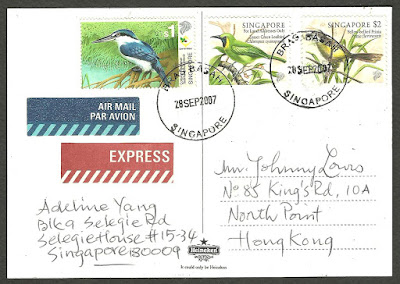 $1
SINGAPORE
SINGAPORE
For Local Addresses Only
SINGAPORE $2
BRAS BASAH
28SEP2007
SINGAPORE
BRAS BASAH
28SEP2007
SINGAPORE
AIR MAIL
PAR AVION
EXPRESS
Mr. Johnny Louis
No 85 King's Rd, 10A
North Point
Hong Kong
Adeline Yang
Blk9 Selegie Rd
Selegie House #15-34
Singapore 180009
Heineken
It could only be Heineken